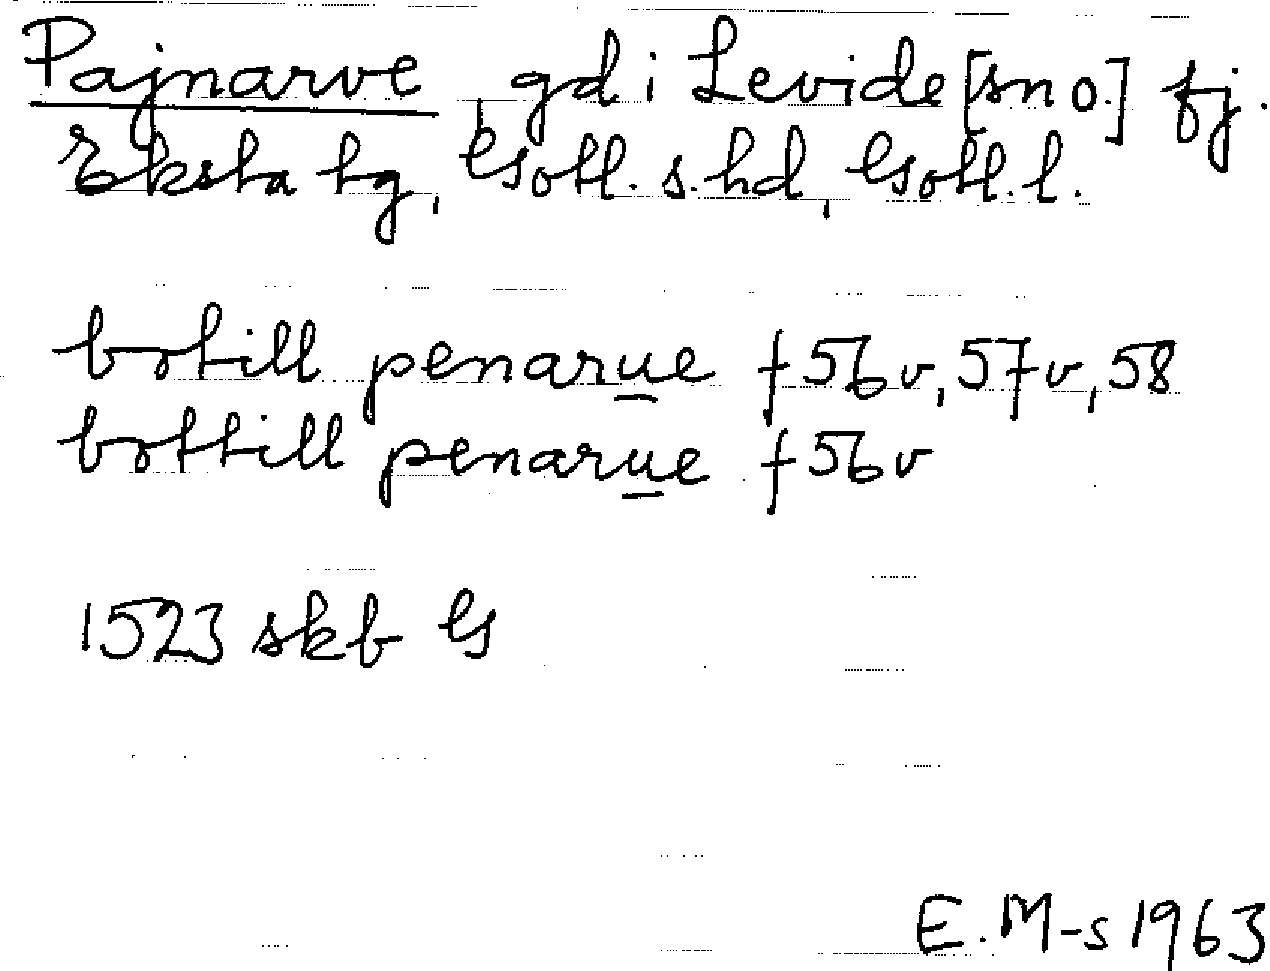 Pajnarve, gd i Levide [sn o.] fj.
Eksta tg, Gotl. s. hd, Gotl. l.
botill penarue f 56 v, 57 v, 58
bottill penarue f 56 v
1523 skb G
E. M-s 1963